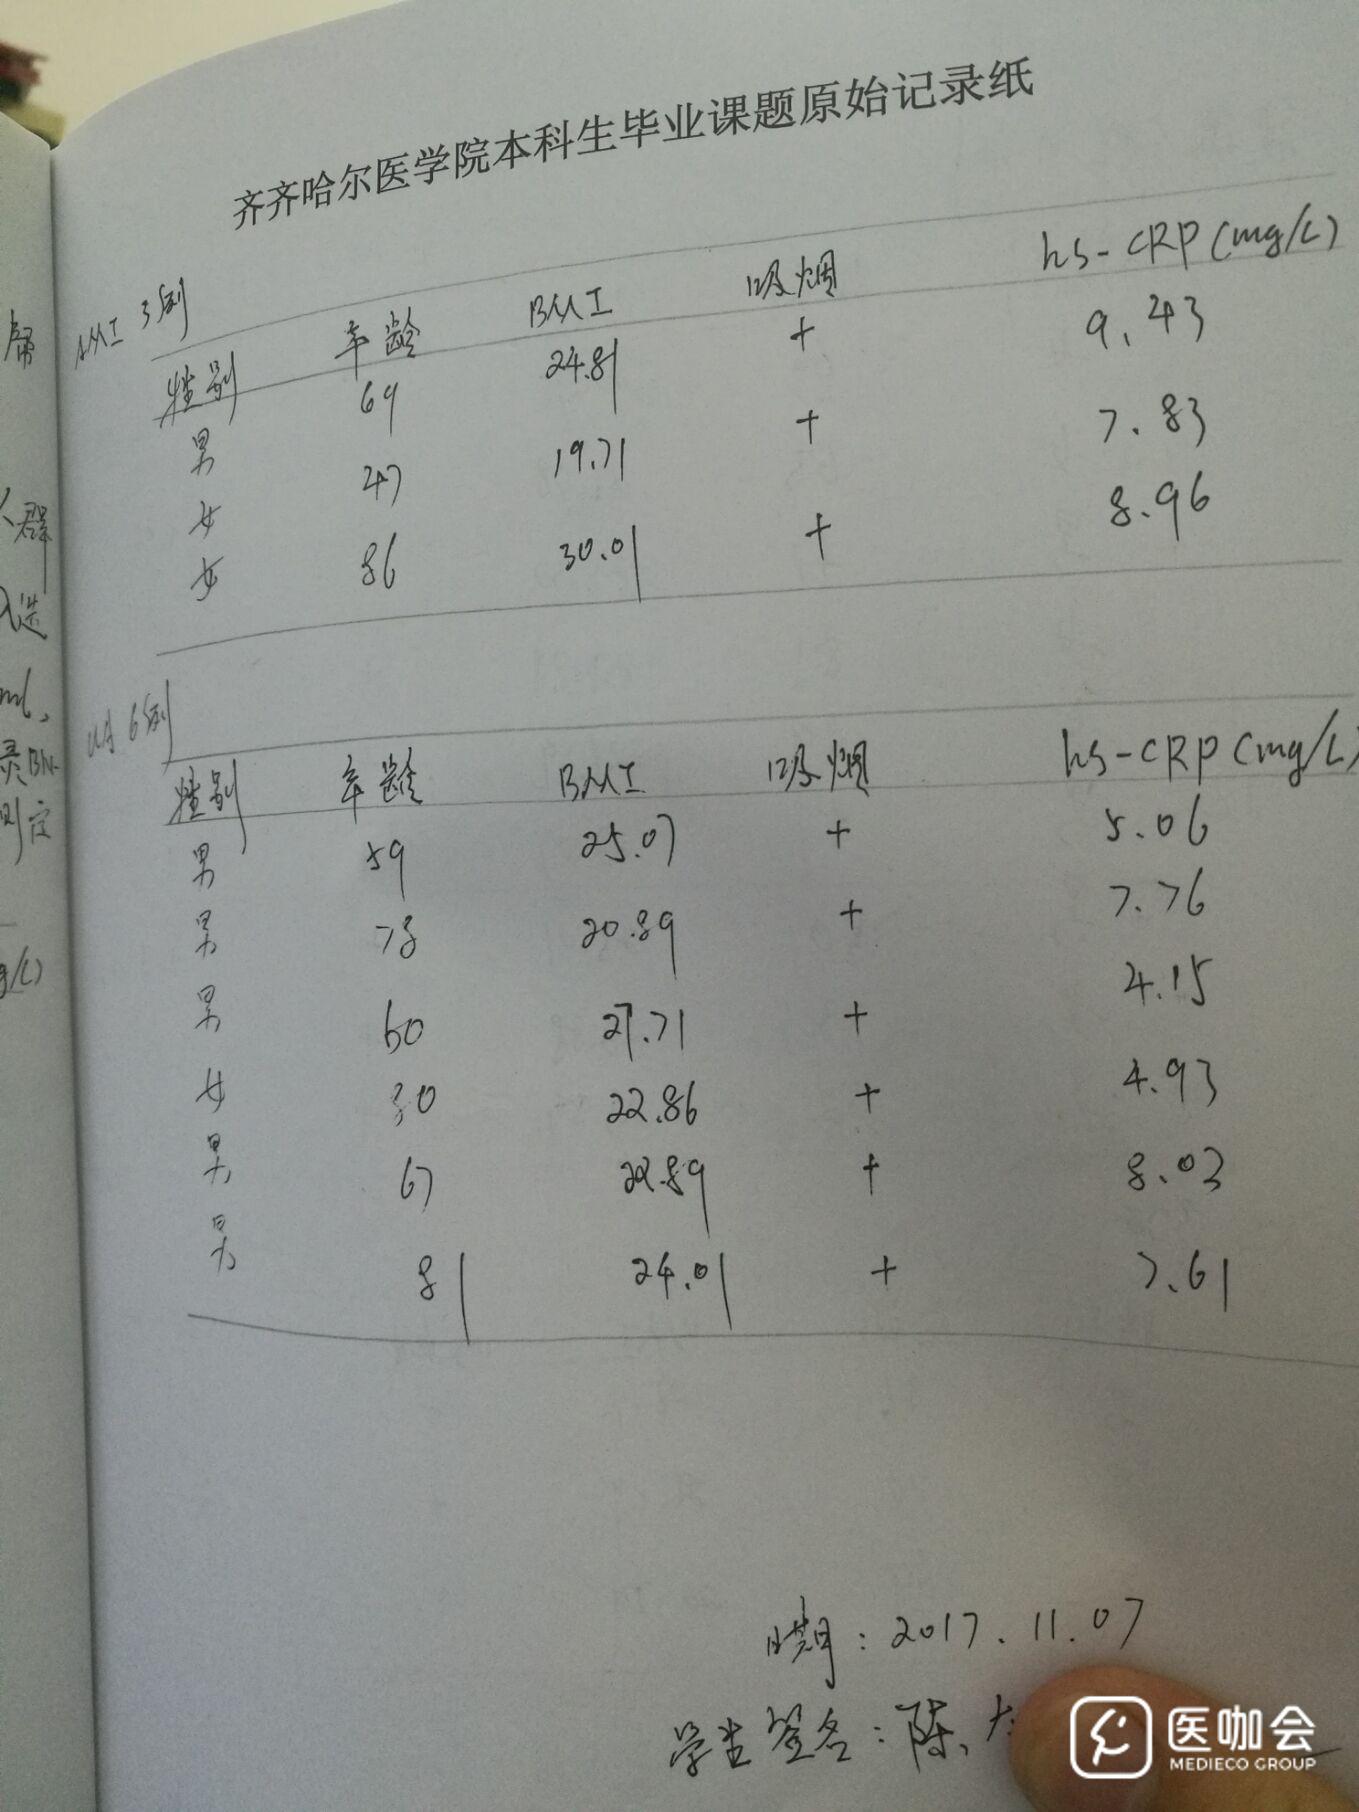 齐齐哈尔医学院本科生毕业课题原始记录纸
AMI 3例
性别 年龄 BMI 吸烟 hs-CRP(mg/L)
男 69 24.81 + 9.43
女 47 19.71 + 7.83
女 86 30.01 + 8.96
UA 6例
性别 年龄 BMI 吸烟 hs-CRP(mg/L)
男 59 25.07 + 5.06
男 78 20.89 + 7.76
男 60 27.71 + 4.15
女 30 22.86 + 4.93
男 67 22.89 + 8.03
男 81 24.01 + 7.61
日期：2017.11.07
学生签名：陈
群
入选
ml,
灵BN-
测定
g/L)
医咖会
MEDIECO GROUP